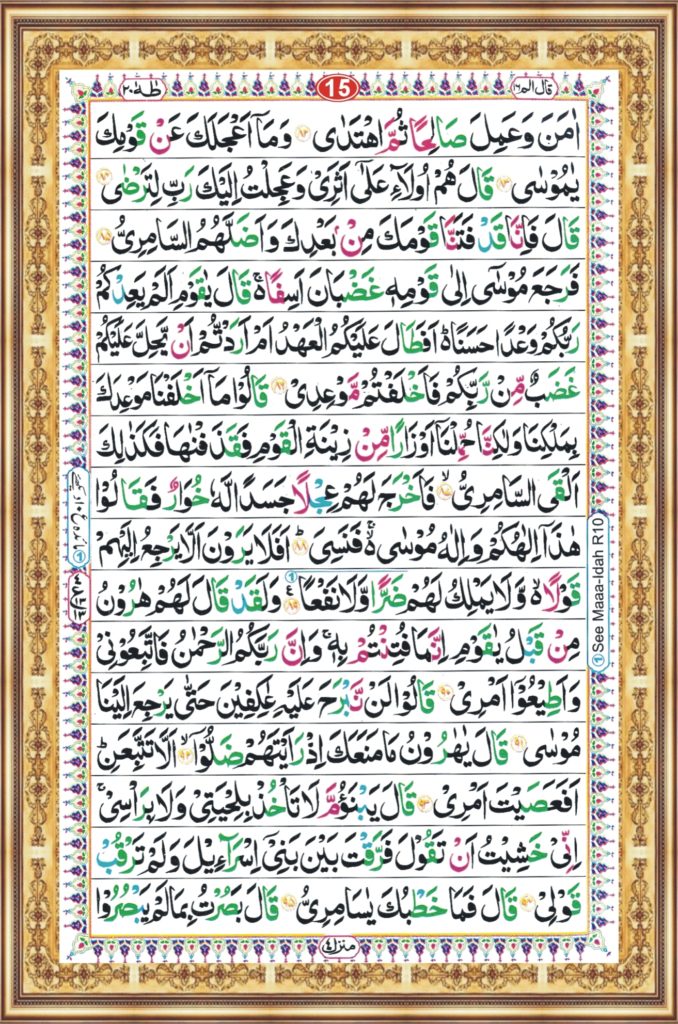 قَالَ اَلَمْ ١٦ 15 طٰهٰ ٢٠
اٰمَنَ وَعَمِلَ صَالِحًا ثُمَّ اهْتَدٰى ﴿۸۲﴾ وَمَآ اَعْجَلَكَ عَنْ قَوْمِكَ
يٰمُوْسٰى ﴿۸۳﴾ قَالَ هُمْ اُولَآءِ عَلٰٓى اَثَرِىْ وَعَجِلْتُ اِلَيْكَ رَبِّ لِتَرْضٰى ﴿۸۴﴾
قَالَ فَاِنَّا قَدْ فَتَنَّا قَوْمَكَ مِنْۢ بَعْدِكَ وَاَضَلَّهُمُ السَّامِرِىُّ ﴿۸۵﴾
فَرَجَعَ مُوْسٰٓى اِلٰى قَوْمِهٖ غَضْبَانَ اَسِفًا ۚ قَالَ يٰقَوْمِ اَلَمْ يَعِدْكُمْ
رَبُّكُمْ وَعْدًا حَسَنًا ؕ اَفَطَالَ عَلَيْكُمُ الْعَهْدُ اَمْ اَرَدْتُّمْ اَنْ يَّحِلَّ عَلَيْكُمْ
غَضَبٌ مِّنْ رَّبِّكُمْ فَاَخْلَفْتُمْ مَّوْعِدِىْ ﴿۸۶﴾ قَالُوْا مَآ اَخْلَفْنَا مَوْعِدَكَ
بِمَلْكِنَا وَلٰكِنَّا حُمِّلْنَآ اَوْزَارًا مِّنْ زِيْنَةِ الْقَوْمِ فَقَذَفْنٰهَا فَكَذٰلِكَ
اَلْقَى السَّامِرِىُّ ﴿۸۷﴾ فَاَخْرَجَ لَهُمْ عِجْلًا جَسَدًا لَّهٗ خُوَارٌ فَقَالُوْا
هٰذَآ اِلٰهُكُمْ وَاِلٰهُ مُوْسٰى ۬ فَنَسِىَ ﴿۸۸﴾ اَفَلَا يَرَوْنَ اَلَّا يَرْجِعُ اِلَيْهِمْ
قَوْلًا ۬ وَّلَا يَمْلِكُ لَهُمْ ضَرًّا وَّلَا نَفْعًا ﴿۸۹﴾ وَلَقَدْ قَالَ لَهُمْ هٰرُوْنُ
مِنْ قَبْلُ يٰقَوْمِ اِنَّمَا فُتِنْتُمْ بِهٖ ۚ وَاِنَّ رَبَّكُمُ الرَّحْمٰنُ فَاتَّبِعُوْنِىْ
وَاَطِيْعُوْٓا اَمْرِىْ ﴿۹۰﴾ قَالُوْا لَنْ نَّبْرَحَ عَلَيْهِ عٰكِفِيْنَ حَتّٰى يَرْجِعَ اِلَيْنَا
مُوْسٰى ﴿۹۱﴾ قَالَ يٰهٰرُوْنُ مَا مَنَعَكَ اِذْ رَاَيْتَهُمْ ضَلُّوْٓا ﴿۹۲﴾ اَلَّا تَتَّبِعَنِ ؕ
اَفَعَصَيْتَ اَمْرِىْ ﴿۹۳﴾ قَالَ يَبْنَؤُمَّ لَا تَاْخُذْ بِلِحْيَتِىْ وَلَا بِرَاْسِىْ ۚ
اِنِّىْ خَشِيْتُ اَنْ تَقُوْلَ فَرَّقْتَ بَيْنَ بَنِىْٓ اِسْرَآءِيْلَ وَلَمْ تَرْقُبْ
قَوْلِىْ ﴿۹۴﴾ قَالَ فَمَا خَطْبُكَ يٰسَامِرِىُّ ﴿۹۵﴾ قَالَ بَصُرْتُ بِمَا لَمْ يَبْصُرُوْا
منزل ٤
① See Maaa-Idah R10